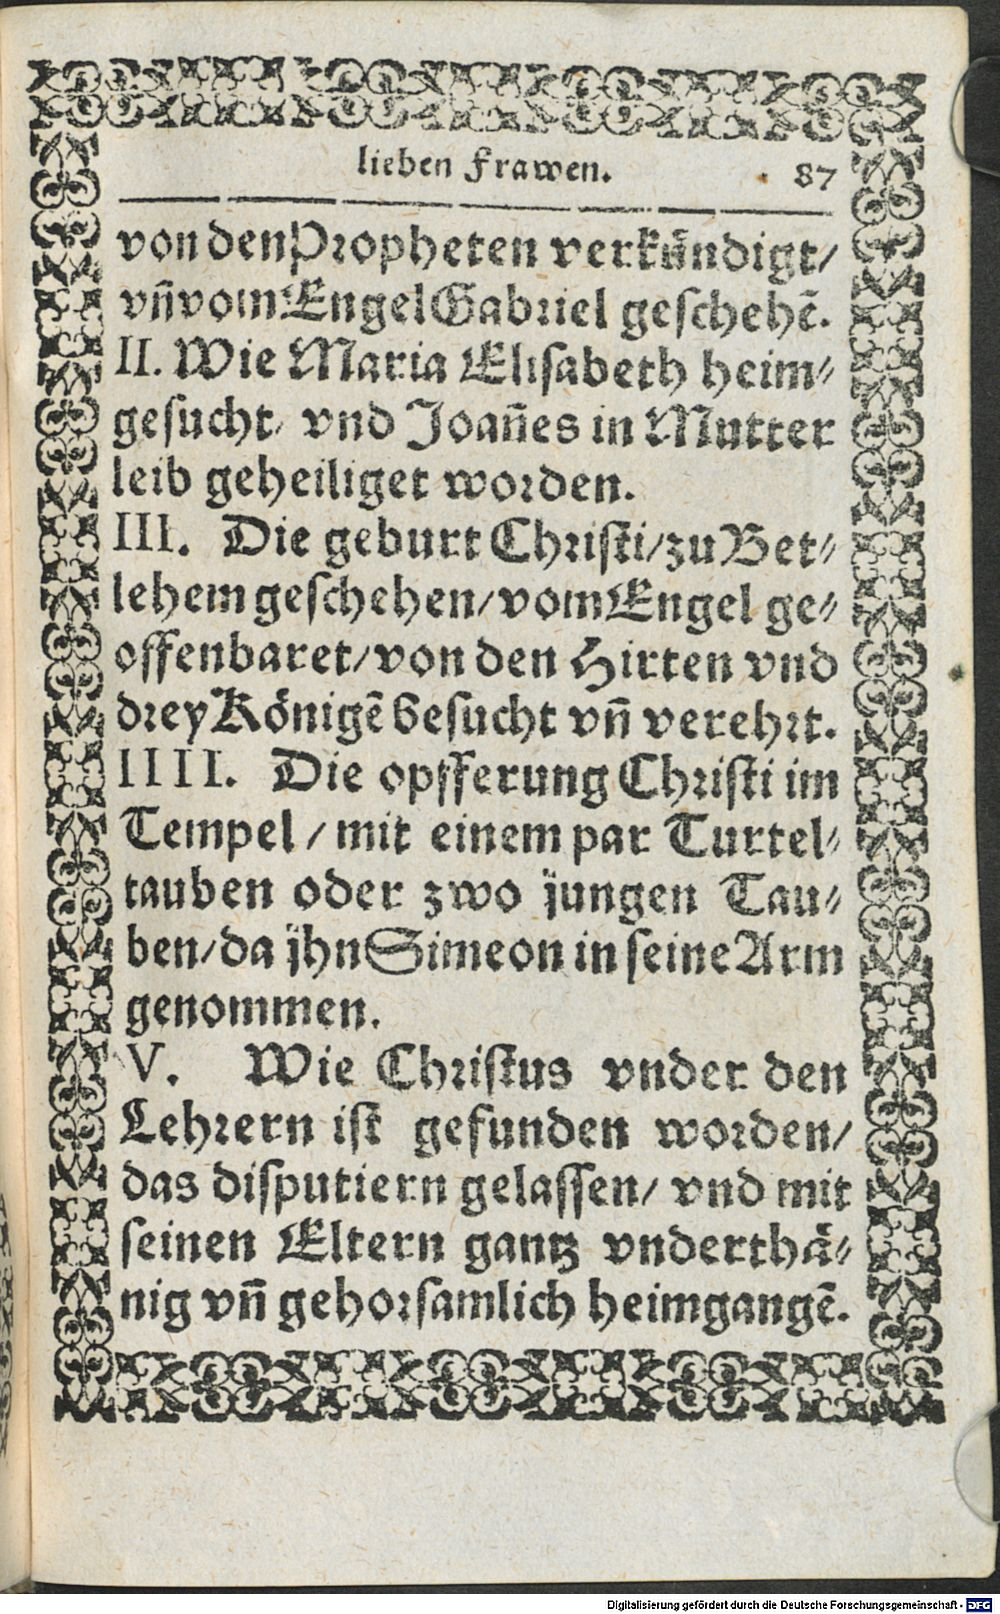 lieben Frawen. 87
von den Propheten verkündigt/
vñ vom Engel Gabriel geschehẽ.
II. Wie Maria Elisabeth heim⸗
gesucht/ vnd Joañes in Mutter
leib geheiliget worden.
III. Die geburt Christi/ zu Bet⸗
lehem geschehen/ vom Engel ge⸗
offenbaret/ von den Hirten vnd
drey Königẽ besucht vñ verehrt.
IIII. Die opfferung Christi im
Tempel/ mit einem par Turtel⸗
tauben oder zwo jungen Tau⸗
ben/ da jhn Simeon in seine Arm
genommen.
V. Wie Christus vnder den
Lehrern ist gefunden worden/
das disputiern gelassen/ vnd mit
seinen Eltern gantz vnderthä⸗
nig vñ gehorsamlich heimgangẽ.
Digitalisierung gefördert durch die Deutsche Forschungsgemeinschaft - DFG